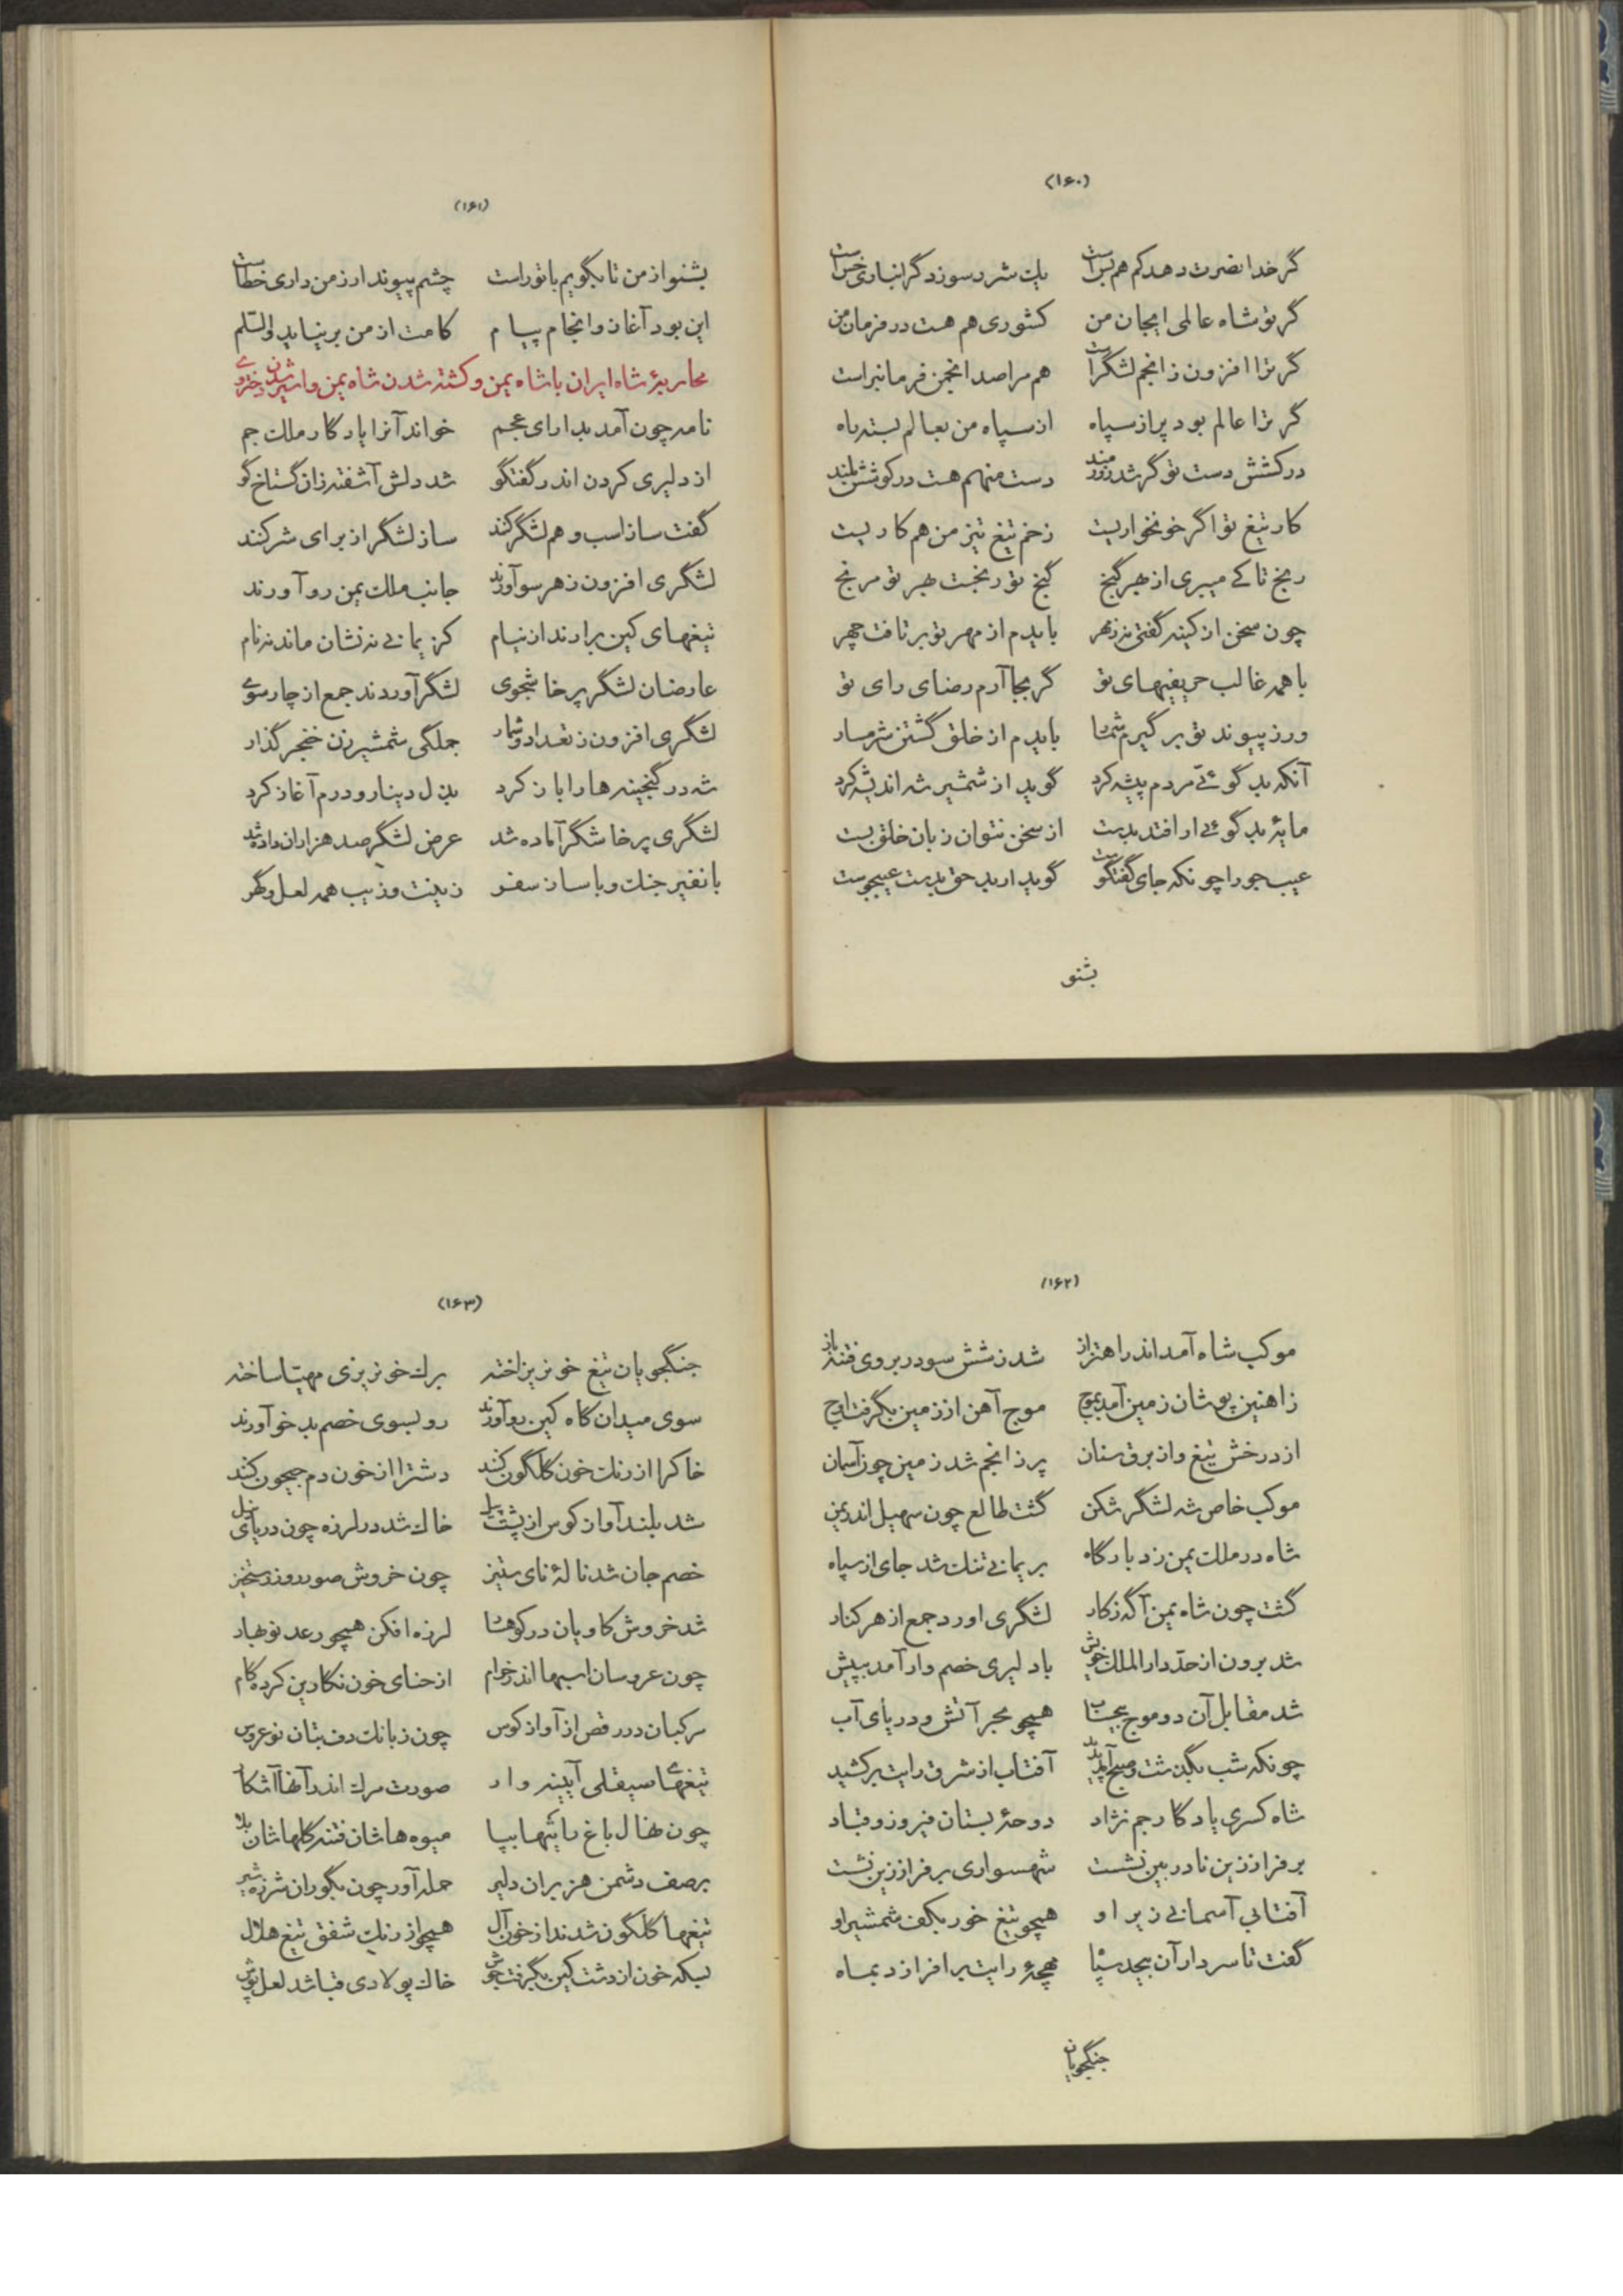 (۱۶۰)
گر خدا نصرت دهد کم هم بس است یک شرر سوزد گر انباری خس است
گر تو شاه عالمی ایجان من کشوری هم هست در فرمان من
گر ترا افزون ز انجم لشگر است هم مرا صد انجمن فرمانبر است
گر ترا عالم بود پر از سپاه از سپاه من بعالم بسته راه
در کشش دست تو گر شد زورمند دست منهم هست در کوشش بلند
کار تیغ تو اگر خونخواریست زخم تیغ تیز من هم کاریست
رنج تا کے میبری از بهر گنج گنج تو رنجت بهر تو مرنج
چون سخن از کینه گفتی نه ز مهر بایدم از مهر تو برتافت چهر
با همه غالب حریفیهای تو گر بجا آرم رضای رای تو
ور ز پیوند تو بر گیرم شمار بایدم از خلق گشتن شرمسار
آنکه بد گوئے مردم پیشه کرد گوید از شمشیر شه اندیشه کرد
مایهٔ بد گوئے ار افتد بدست از سخن نتوان زبان خلق بست
عیب جو را چونکه جای گفتگوست گوید ار ید حق بدست عیبجوست
بشنو
(۱۶۱)
بشنو از من تا بگویم با تو راست چشم پیوند ار ز من داری خطاست
این بود آغاز و انجام پیام کامت از من بر نیاید والسّلم
محاربهٔ شاه ایران با شاه یمن و کشته شدن شاه یمن و اسیر شدن دختر وے
نامه چون آمد بدارای عجم خواند آنرا یادگار ملک جم
از دلیری کردن اندر گفتگو شد دلش آشفته زان گستاخ گو
گفت ساز اسب و هم لشگر کنند ساز لشگر از برای شر کنند
لشگری افزون ز هر سو آورند جانب ملک یمن رو آورند
تیغهای کین برارند از نیام کز یمانے نه نشان ماند نه نام
عارضان لشگر پرخاشجوی لشگر آوردند جمع از چارسوے
لشگری افزون ز تعداد و شمار جملگی شمشیرزن خنجر گذار
شه در گنجینه‌ها را باز کرد بذل دینار و درم آغاز کرد
لشگری پرخاشگر آماده شد عرض لشگر صد هزاران داده شد
با نفیر جنک و با ساز سفر زینت و زیب همه لعل و گهر
(۱۶۲)
موکب شاه آمد اندر اهتزاز شد ز شش سو در بروی فتنه باز
زاهنین پوشان زمین آمد بموج موج آهن از زمین بگرفت اوج
از درخش تیغ و از برق سنان پر ز انجم شد زمین چون آسمان
موکب خاص شه لشگر شکن گشت طالع چون سهیل اندر یمن
شاه در ملک یمن زد بارگاه بر یمانے تنک شد جای از سپاه
گشت چون شاه یمن آگه ز کار لشگری اورد جمع از هر کنار
شد برون از حدّ دار الملک خویش با دلیری خصم وار آمد بپیش
شد مقابل آن دو موج بیحساب همچو مجمر آتش و دریای آب
چونکه شب بگذشت و صبح آمد پدید آفتاب از شرق رایت برکشید
شاه کسری یادگار جم نژاد دوحهٔ بستان فیروز و قباد
بر فراز زین نادر بین نشست شهسواری بر فراز زین نشست
آفتابی آسمانے زیر او همچو تیغ خور بکف شمشیر او
گفت تا سردار آن بیحد سپاه مهچهٔ رایت بر افرازد بماه
جنگجویان
(۱۶۳)
جنگجویان تیغ خونریز اخته برک خونریزی مهیّا ساخته
سوی میدان گاه کین رو آورند رو بسوی خصم بد خو آورند
خاکرا از رنک خون گلگون کنند دشترا از خون دم جیحون کنند
شد بلند آواز کوس از پشت پیل خاک شد در لرزه چون دریای نیل
خصم جان شد نالهٔ نای ستیز چون خروش صور روز رستخیز
شد خروش گاویان در کوهسار لرزه افکن همچو رعد نوبهار
چون عروسان اسبها اندر خرام از حنای خون نگارین کرده گام
مرکبان در رقص از آواز کوس چون ز بانک دف بتان نو عروس
تیغهاے سیقلی آیینه وار صورت مرک اندر آنها آشکار
چون نهال باغ رایتها بپا میوه‌هاشان فتنه گلهاشان بلا
بر صف دشمن هزبران دلیر حمله‌آور چون بگوران شرزه شیر
تیغها گلگون شدند از خون آل همچو از رنک شفق تیغ هلال
بسکه خون از دشت کین بگرفت جوش خاک پولادی قبا شد لعل پوش